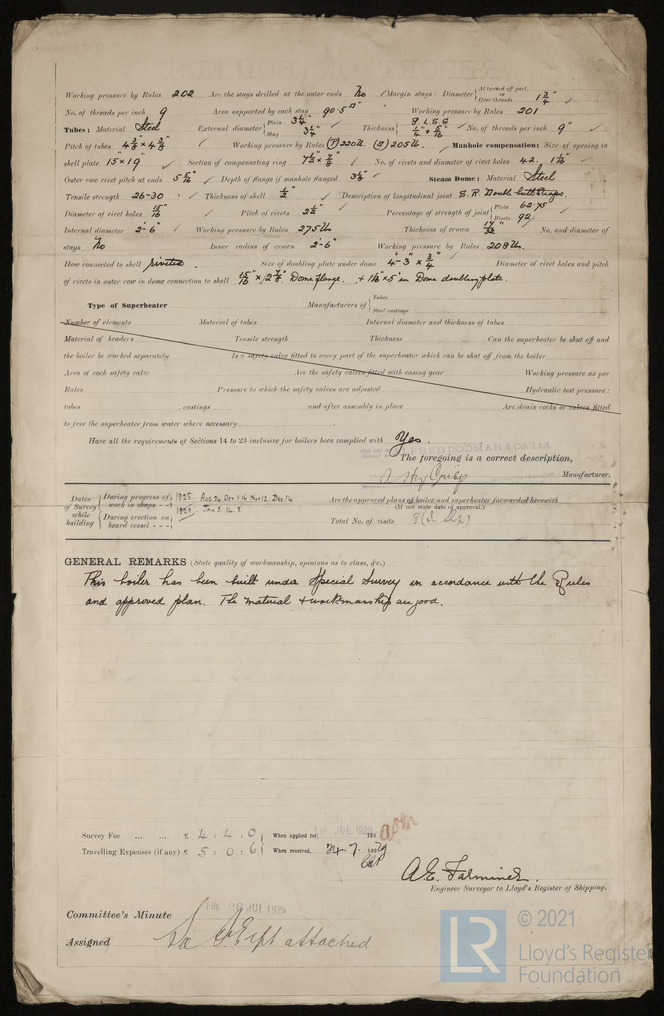 Working pressure by Rules 202 Are the stays drilled at the outer ends No Margin stays: Diameter { At turned off part, or Over threads 1 3/4"
No. of threads per inch 9 Area supported by each stay 90.5 □" Working pressure by Rules 201
Tubes: Material Steel External diameter { Plain 3 1/4" Stay 3 1/4" Thickness { 8 L.S.G 1/4" + 5/16" No. of threads per inch 9"
Pitch of tubes 4 5/8" × 4 3/8" Working pressure by Rules (P) 220 lb. (S) 205 lb. Manhole compensation: Size of opening in
shell plate 15" × 19" Section of compensating ring 7 1/2" × 7/8" No. of rivets and diameter of rivet holes 42.
Outer row rivet pitch at ends Depth of flange if manhole flanged 3 1/2" Steam Dome: Material Steel
Tensile strength 26-30 Thickness of shell 1/2" Description of longitudinal joint S. R. Double butt straps.
Diameter of rivet holes 15/16" Pitch of rivets 2 1/2" Percentage of strength of joint { Plate 62.75 Rivets 92
Internal diameter 2'-6" Working pressure by Rules 275 lb. Thickness of crown 17/32" No. and diameter of
stays No Inner radius of crown 2'-6" Working pressure by Rules 208 lb.
How connected to shell riveted. Size of doubling plate under dome 4'-3" × 3/4" Diameter of rivet holes and pitch
of rivets in outer row in dome connection to shell 15/16" × 2 7/8" Dome flange. + × 5" in Dome doubling plate.
Type of Superheater Manufacturers of { Tubes Steel castings
Number of elements Material of tubes Internal diameter and thickness of tubes
Material of headers Tensile strength Thickness Can the superheater be shut off and
the boiler be worked separately Is a safety valve fitted to every part of the superheater which can be shut off from the boiler
Area of each safety valve Are the safety valves fitted with easing gear Working pressure as per
Rules Pressure to which the safety valves are adjusted Hydraulic test pressure:
tubes castings and after assembly in place Are drain cocks or valves fitted
to free the superheater from water where necessary
Have all the requirements of Sections 14 to 23 inclusive for boilers been complied with Yes.
FRED DODMAN & Co. Ltd.
The foregoing is a correct description,
Manufacturer.
Dates of Survey while building { During progress of work in shops - - } 1928. Aug 24. Oct 3.16 Nov 12. Dec 14
{ During erection on board vessel - - - } 1929. Jan 2. 14. 8
Are the approved plans of boiler and superheater forwarded herewith
(If not state date of approval.)
Total No. of visits 8 (In Shop)
GENERAL REMARKS (State quality of workmanship, opinions as to class, &c.)
This boiler has been built under Special Survey in accordance with the Rules
and approved plan. The material & workmanship are good.
Survey Fee ... ... £ 4 : 4 : 0 When applied for, 18 JUL 1929 192
Travelling Expenses (if any) £ 5 : 0 : 6 When received, 24.7.1929
A.E. Farminer.
Engineer Surveyor to Lloyd's Register of Shipping.
Committee's Minute FRI. 26 JUL 1929
Assigned attached
© 2021
LR
Lloyd's Register
Foundation